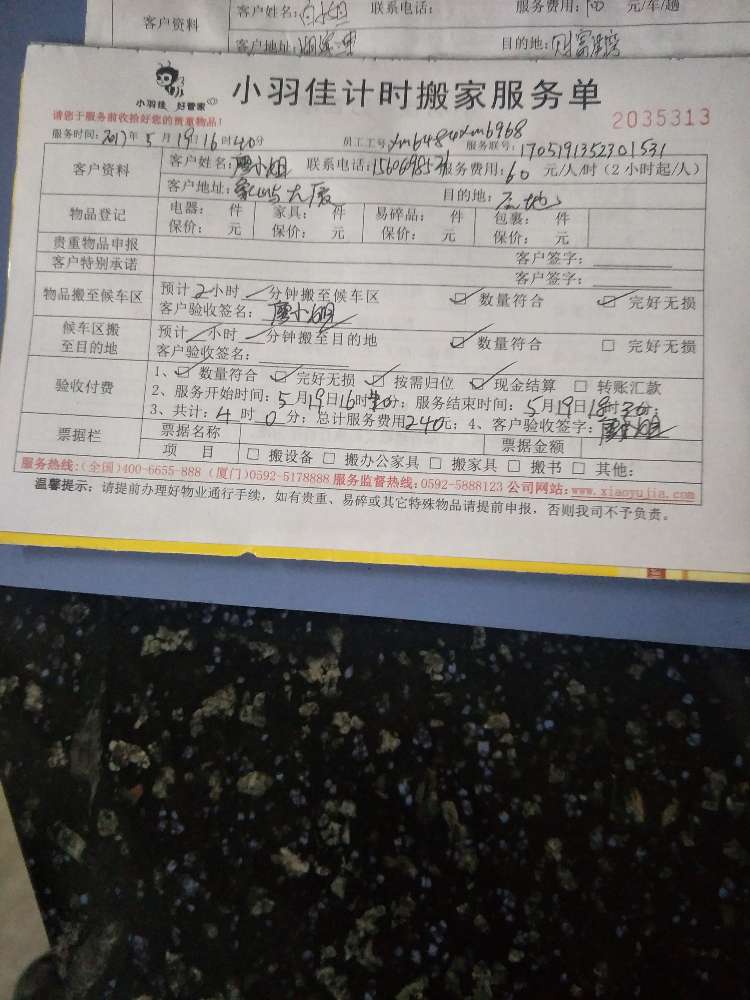 客户资料 客户姓名: 联系电话: 服务费用: 元/车/趟
客户地址: 目的地:
小羽佳 好管家
小羽佳计时搬家服务单
2035313
请您于服务前收拾好您的贵重物品!
服务时间:2017年5月19日16时40分 员工工号: xm6484 xm6968 服务联号: 1705191352301531
客户资料 客户姓名:廖小姐 联系电话: 服务费用:60 元/人/时(2小时起/人)
客户地址: 大厦 目的地:
物品登记 电器: 件 家具: 件 易碎品: 件 包裹: 件
保价: 元 保价: 元 保价: 元 保价: 元
贵重物品申报 客户签字:
客户特别承诺 客户签字:
物品搬至候车区 预计2小时 分钟搬至候车区 ☑ 数量符合 ☑ 完好无损
客户验收签名:廖小姐
候车区搬至目的地 预计 小时 分钟搬至目的地 ☑ 数量符合 □ 完好无损
客户验收签名:
验收付费 1、☑ 数量符合 ☑ 完好无损 ☑ 按需归位 ☑ 现金结算 □ 转账汇款
2、服务开始时间:5月19日16时 分;服务结束时间:5月19日18时30分;
3、共计:4时0分;总计服务费用240元;4、客户验收签字:廖小姐
票据栏 票据名称 票据金额
项 目 □ 搬设备 □ 搬办公家具 □ 搬家具 □ 搬书 □ 其他:
服务热线:(全国)400-6655-888 (厦门)0592-5178888 服务监督热线:0592-5888123 公司网站:www.xiaoyujia.com
温馨提示:请提前办理好物业通行手续,如有贵重、易碎或其它特殊物品请提前申报,否则我司不予负责。